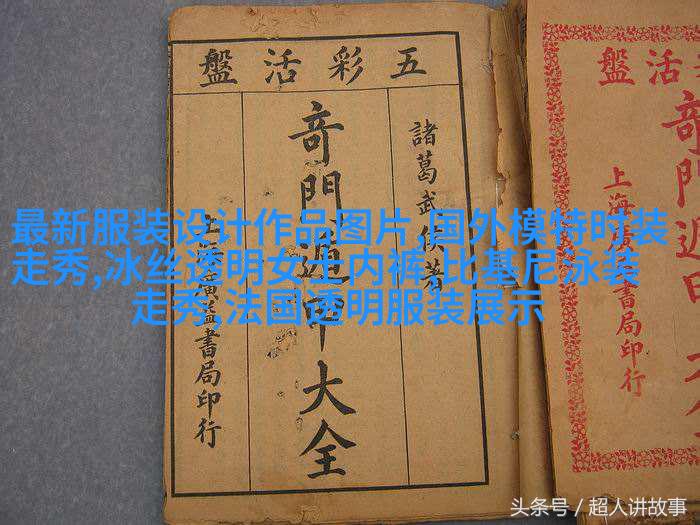 五彩活盤
諸葛武侯著
竒門遁甲大全
上海廣益書局印行
最新服装设计作品图片,国外模特时装
走秀,冰丝透明女士内裤,比基尼泳装
走秀,法国透明服装展示
活盤
竒門遁甲
上海廣益書局印行
头条号 / 超人讲故事